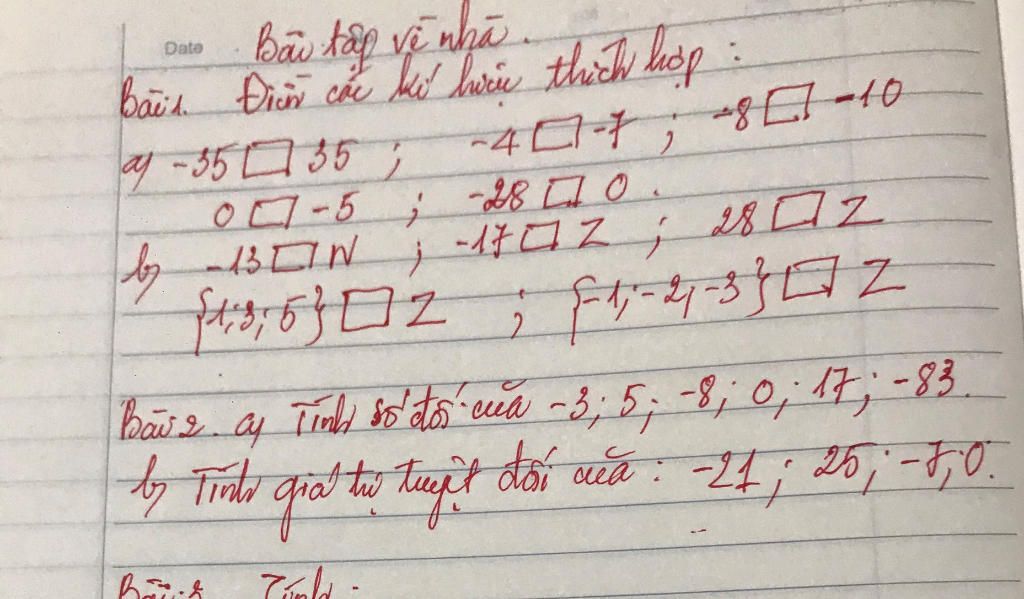 Date Bài tập về nhà.
Bài 1. Điền các kí hiệu thích hợp :
a) -35 □ 35 ; -4 □ -7 ; -8 □ -10
0 □ -5 ; -28 □ 0.
b) -13 □ N ; -17 □ Z ; 28 □ Z
{1;3;5} □ Z ; {-1;-2,-3} □ Z
Bài 2. a) Tính số đối của -3; 5; -8; 0; 17; -83.
b) Tính giá trị tuyệt đối của : -21 ; 25; -7; 0.
Bài 3 Tính :